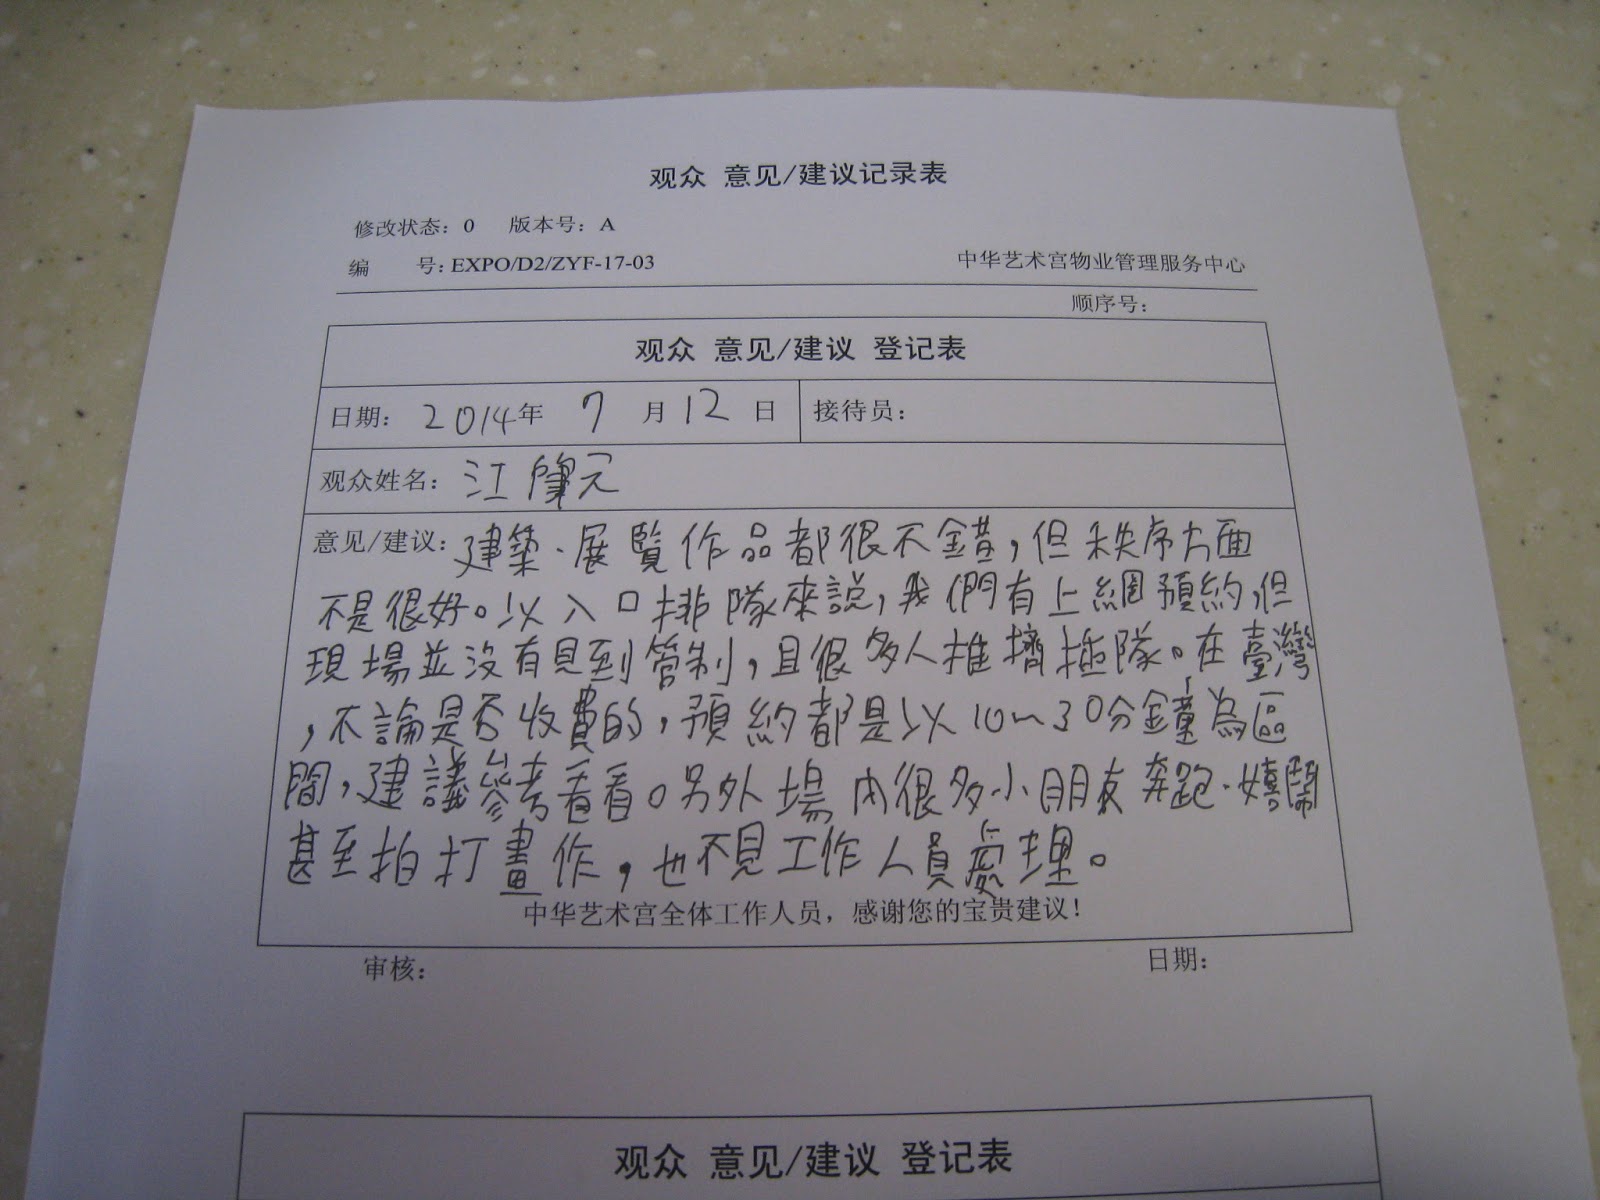 观众 意见/建议记录表
修改状态：0 版本号：A
编 号：EXPO/D2/ZYF-17-03 中华艺术宫物业管理服务中心
顺序号：
观众 意见/建议 登记表
日期：2014年 7 月 12 日 接待员：
观众姓名：江肇元
意见/建议：建築、展覽作品都很不錯，但秩序方面
不是很好。以入口排隊來說，我們有上網預約，但
現場並沒有見到管制，且很多人推擠插隊。在臺灣
，不論是否收費的，預約都是以10~30分鐘為區
間，建議參考看看。另外場內很多小朋友奔跑、嬉鬧
甚至拍打畫作，也不見工作人員處理。
中华艺术宫全体工作人员，感谢您的宝贵建议！
审核： 日期：
观众 意见/建议 登记表